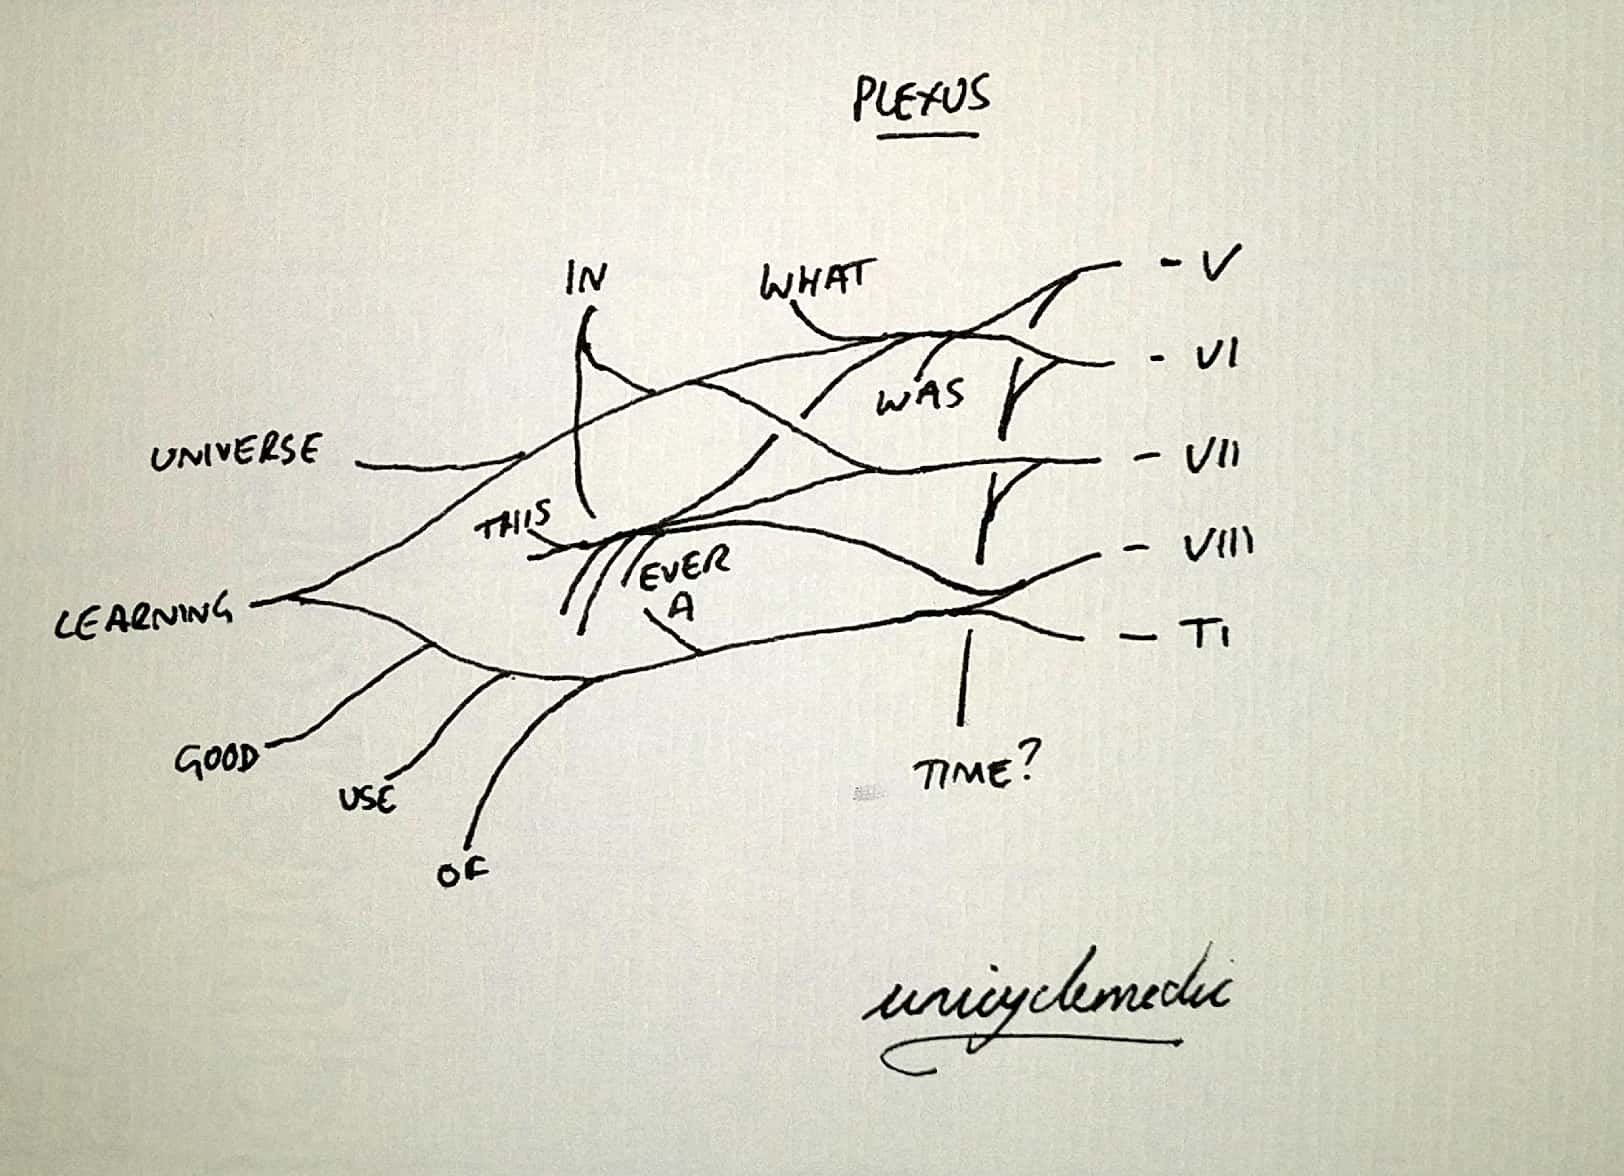 PLEXUS
IN
WHAT
- V
- VI
WAS
UNIVERSE
- VII
THIS
- VIII
EVER
A
LEARNING
- T1
GOOD
USE
TIME?
OF
unicyclemedic